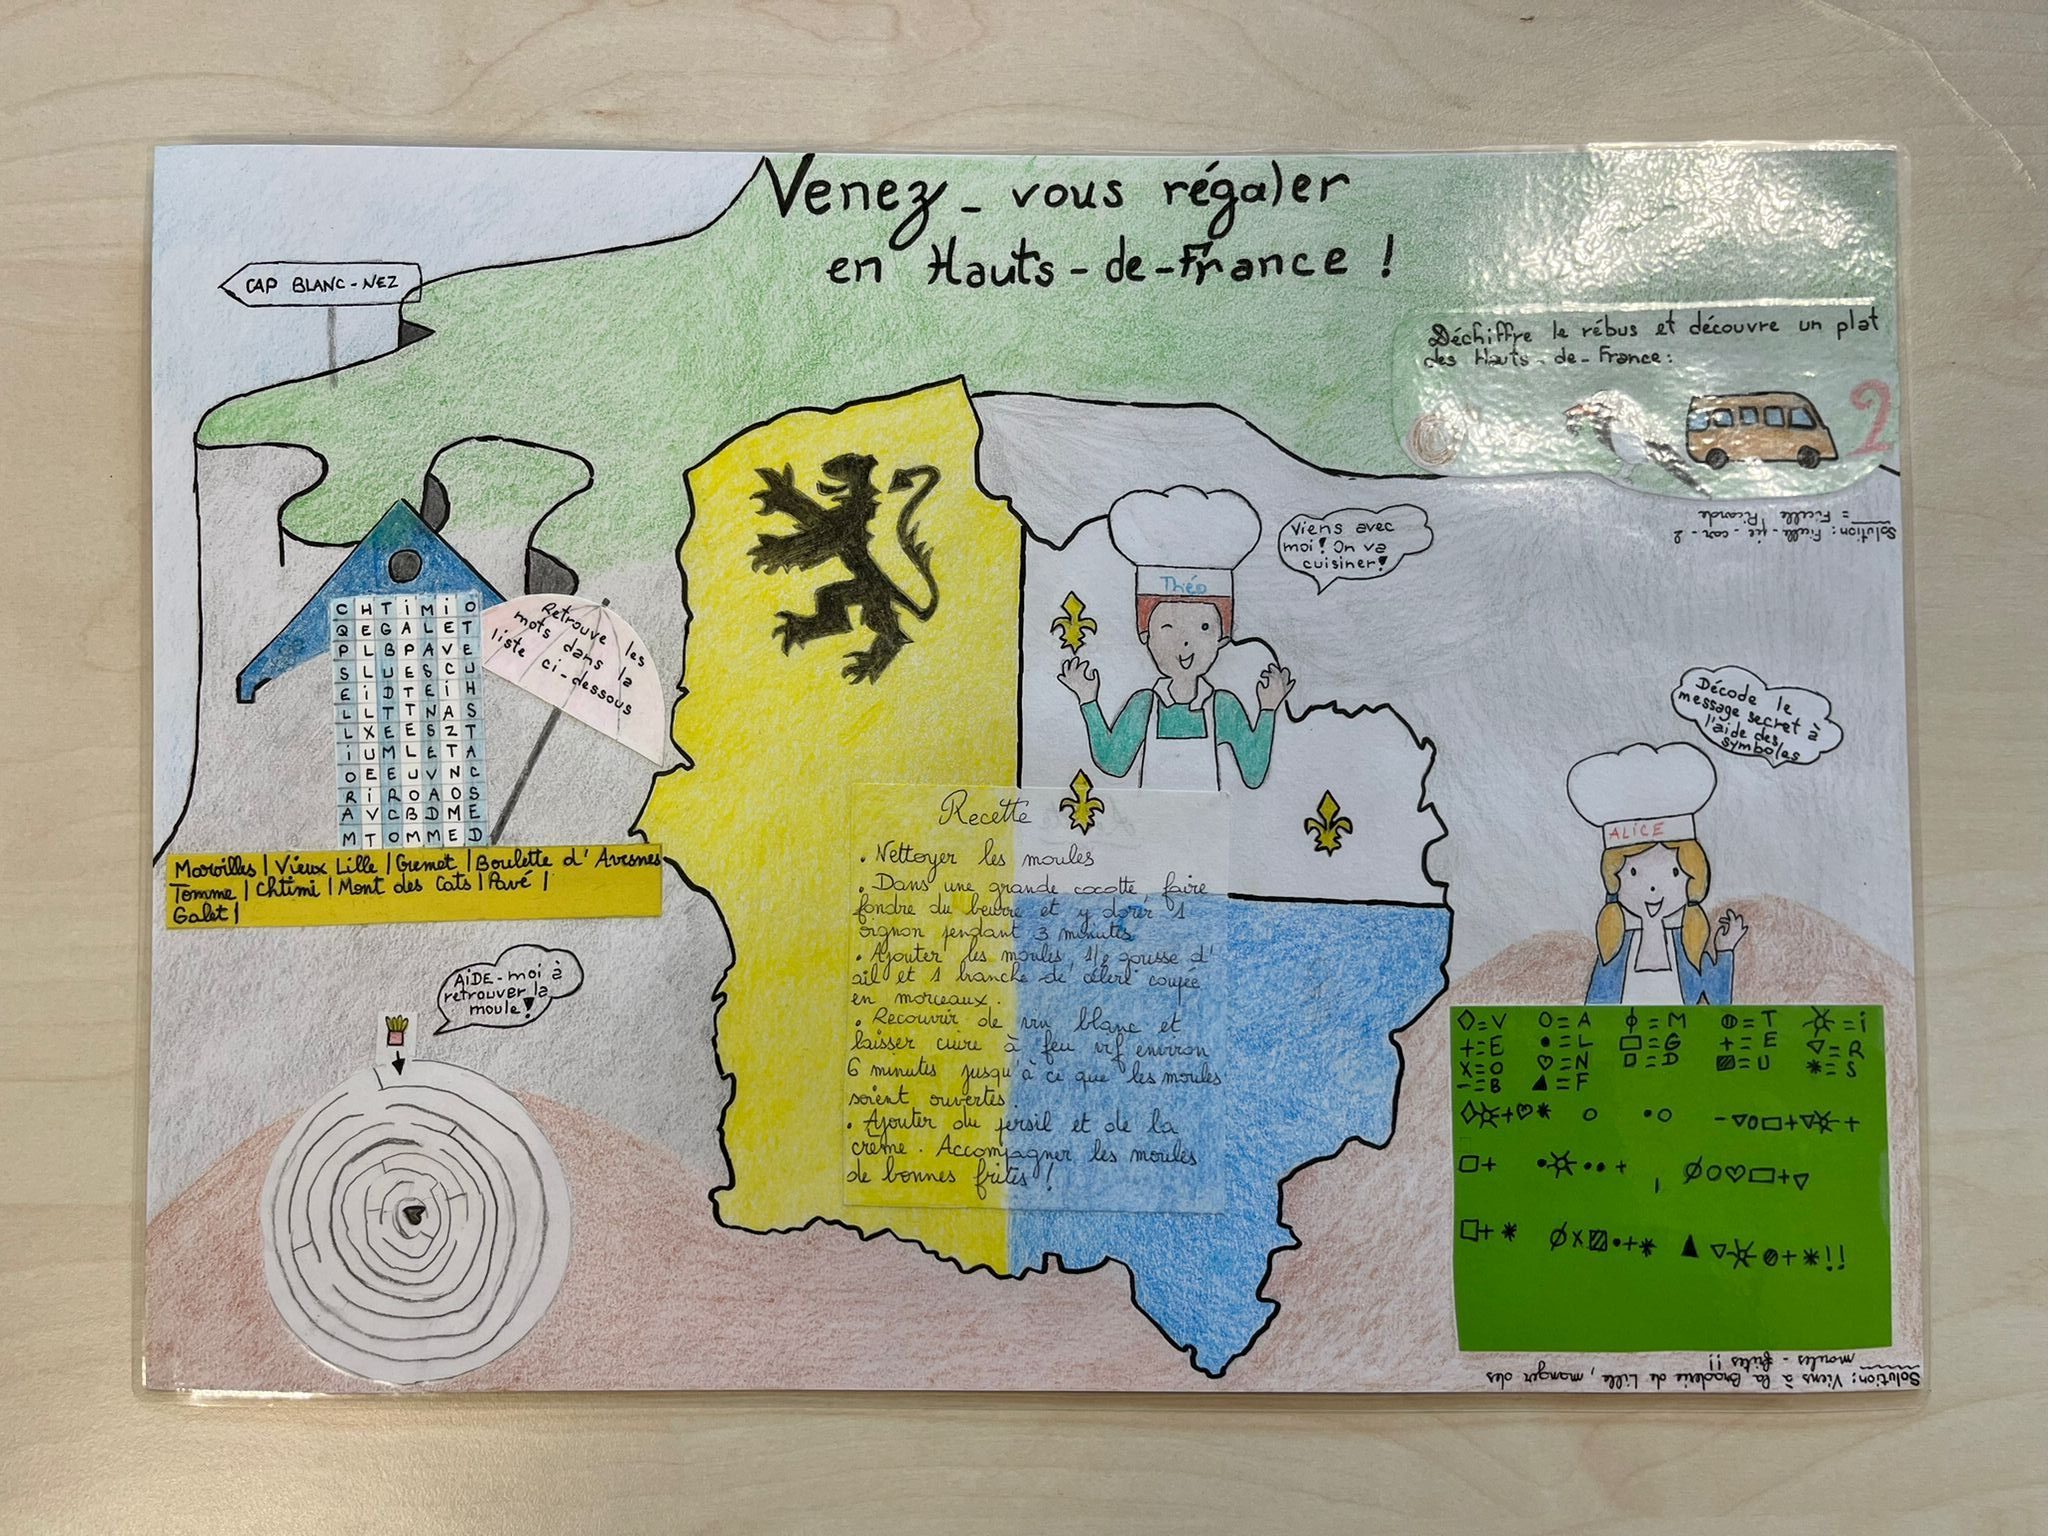 Venez-vous régaler
en Hauts-de-France !
CAP BLANC-NEZ
Déchiffre le rébus et découvre un plat
des Hauts-de-France :
2
Solution : Ficelle - pie - car - 2
= Ficelle Picarde
Viens avec
moi ! On va
cuisiner !
Théo
Retrouve les
mots dans la
liste ci-dessous
C H T i M i O
Q E G A L E T
P L B P A V E
S L U E S C U
E i D T E i H
L L T T N A S
L X E E S Z T
i U M L E T A
O E E U V N C
R i R O A O S
A V C B D M E
M T O M M E D
Maroilles | Vieux Lille | Gremet | Boulette d'Avesnes
Tomme | Chtimi | Mont des Cats | Pavé |
Galet |
AiDE-moi à
retrouver la
moule !
Recette
• Nettoyer les moules
• Dans une grande cocotte, faire
fondre du beurre et y dorer 1
oignon pendant 3 minutes
• Ajouter les moules, 1/2 gousse d'
ail et 1 branche de céleri coupée
en morceaux.
• Recouvrir de vin blanc et
laisser cuire à feu vif environ
6 minutes jusqu'à ce que les moules
soient ouvertes.
• Ajouter du persil et de la
crème. Accompagner les moules
de bonnes frites !
Décode le
message secret à
l'aide des
symboles
ALiCE
◇=V O=A ϕ=M =T =i
+=E •=L □=G +=E ▽=R
X=O ♡=N □=D =U *=S
-=B ▲=F
Solution : Viens à la Braderie de Lille, manger des
moules-frites !!